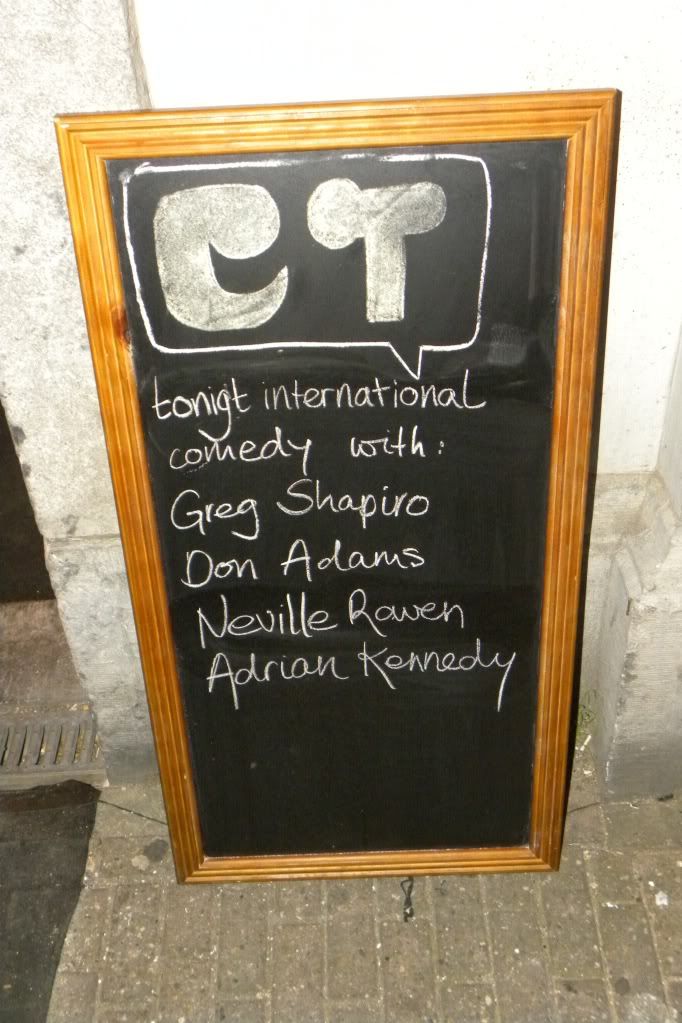 CT
tonigt international
comedy with:
Greg Shapiro
Don Adams
Neville Raven
Adrian Kennedy